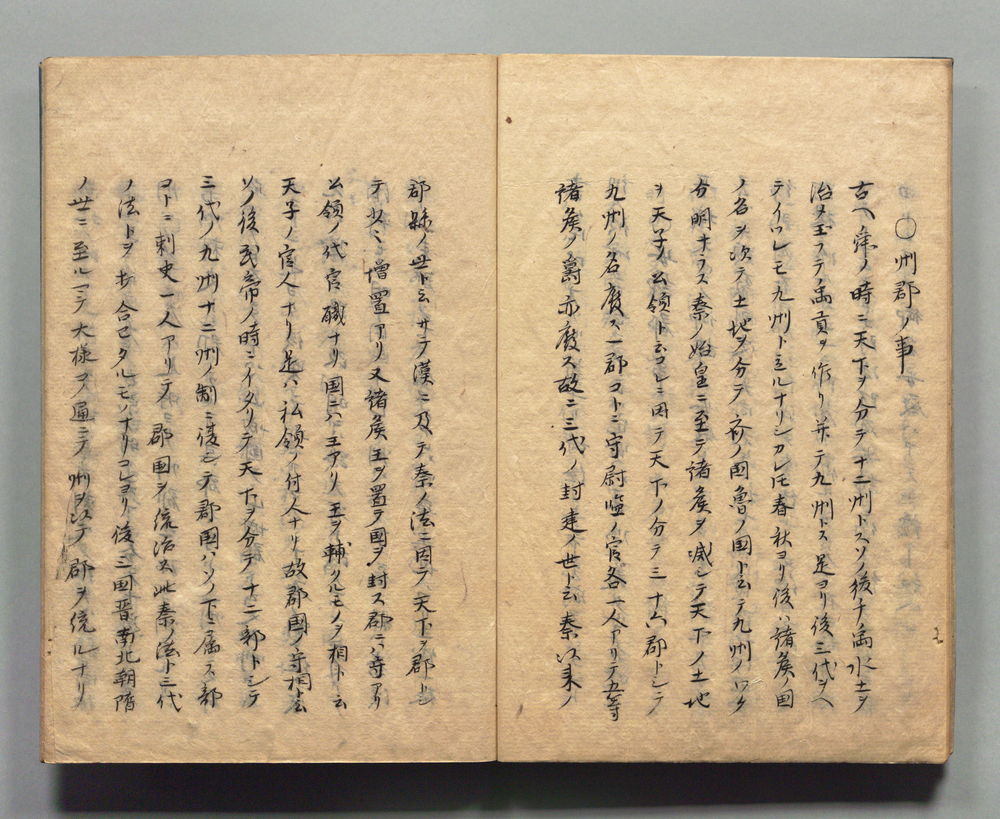 〇州郡ノ事
古ヘ舜ノ時ニ天下ヲ分テ十二州トスソノ後チ禹水土ヲ
治メ玉フテ禹貢ヲ作リ并テ九州トス是ヨリ後三代ヲヘ
テイツレモ九州ト立ルナリシカレ𪜈春秋ヨリ後ハ諸矦国
ノ名ヲ次テ土地ヲ分テ斉ノ国魯ノ国ト云テ九州ノワケ
分明ナラス秦ノ始皇ニ至テ諸矦ヲ滅シテ天下ノ土地
ヲ天子ノ公領ト云コレニ因テ天下ノ分テ三十六郡トシテ
九州ノ名廃ス一郡コトニ守尉監ノ官各一人アリテ五等
諸矦ノ爵亦廃ス故ニ三代ノ封建ノ世ト云秦以来ノ
郡縣ノ世ト云サテ漢ニ及テ秦ノ法ニ因テ天下ヲ郡トシ
テ少〻増置アリ又諸矦王ヲ置テ国ヲ封ス郡ニハ守アリ
公領ノ代官職ナリ国ニハ王アリ王ヲ輔クルモノヲ相ト云
天子ノ官人ナリ是ハ私領ノ付人ナリ故郡国ノ守相ト云
ソノ後武帝ノ時ニイタリテ天下ヲ分テ十二部トシテ
三代ノ九州十二州ノ制ニ復シテ郡国ハソノ下ニ属ス部
コトニ刺史一人アリテ郡国ヲ統治ス此秦ノ法ト三代
ノ法トヲ打合セタルモノナリコレヨリ後三国晋南北朝隋
ノ世ニ至ルマテ大様コレ通ニテ州ヲ以テ郡ヲ統ルナリ